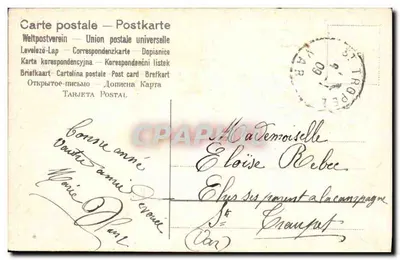 Carte postale – Postkarte
Weltpostverein – Union postale universelle
Levelező-Lap – Correspondenzkarte – Dopisnice
Karta korespondencyjna – Korespondenční listek
Briefkaart – Cartolina postale – Post card – Brefkort
Открытое письмо – Дописна Карта
Tarjeta Postal
ST TROPEZ
VAR
09
Bonne anné
Votre amie Dévouée
Marie
Mademoiselle
Eloïse Rebec
Chés ses parent a la canpagne
St Tropez
(Var)
CPARAMA